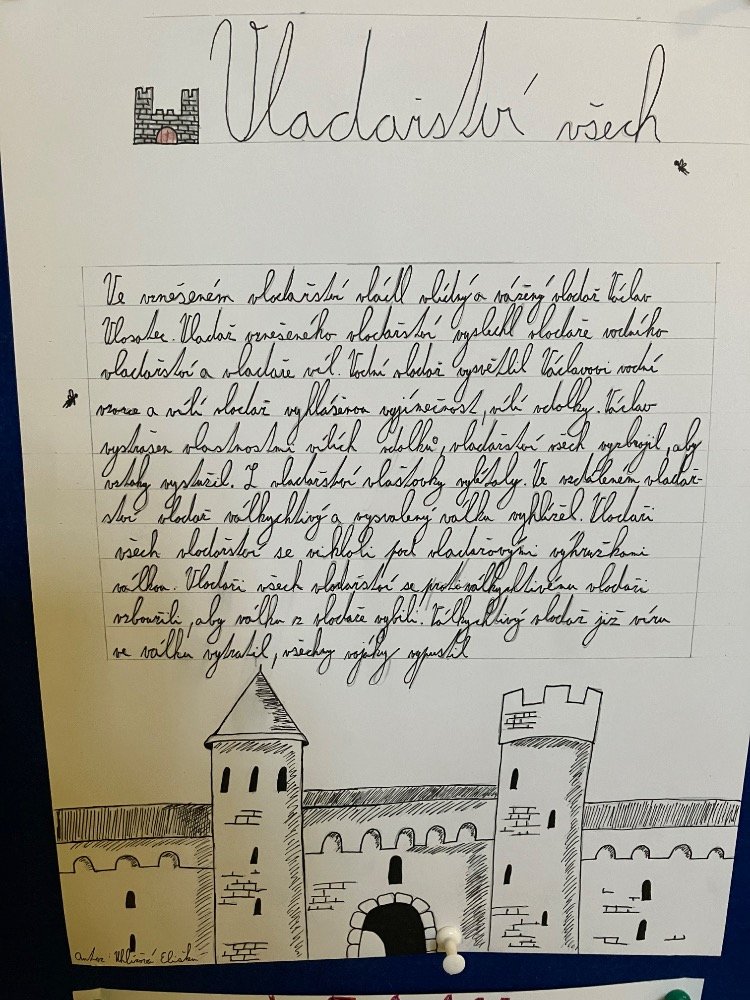 Vladařství všech
Ve vznešeném vladařství vládl vlídný a vážený vladař Václav
Vlasatec. Vladař vznešeného vladařství vyslechl vladaře vodního
vladařství a vladaře víl. Vodní vladař vysvětlil Václavovi vodní
vzorce a vílí vladař vyhlášenou vyjímečnost, vílí vdolky. Václav
vystrašen vlastnostmi vílích vdolků, vladařství všech vyzbrojil, aby
vztahy vyztužil. Z vladařství vlaštovky vylétaly. Ve vzdáleném vladař-
ství vladař válkychtivý a vysvalený válku vyhlížel. Vladaři
všech vladařství se viklali pod vladařovými výhružkami
válkou. Vladaři všech vladařství se protiválkychtivému vladaři
vzbouřili, aby válku z vladaře vybili. Válkychtivý vladař již víru
ve válku vytratil, všechny vojáky vypustil
Autor: Eliška